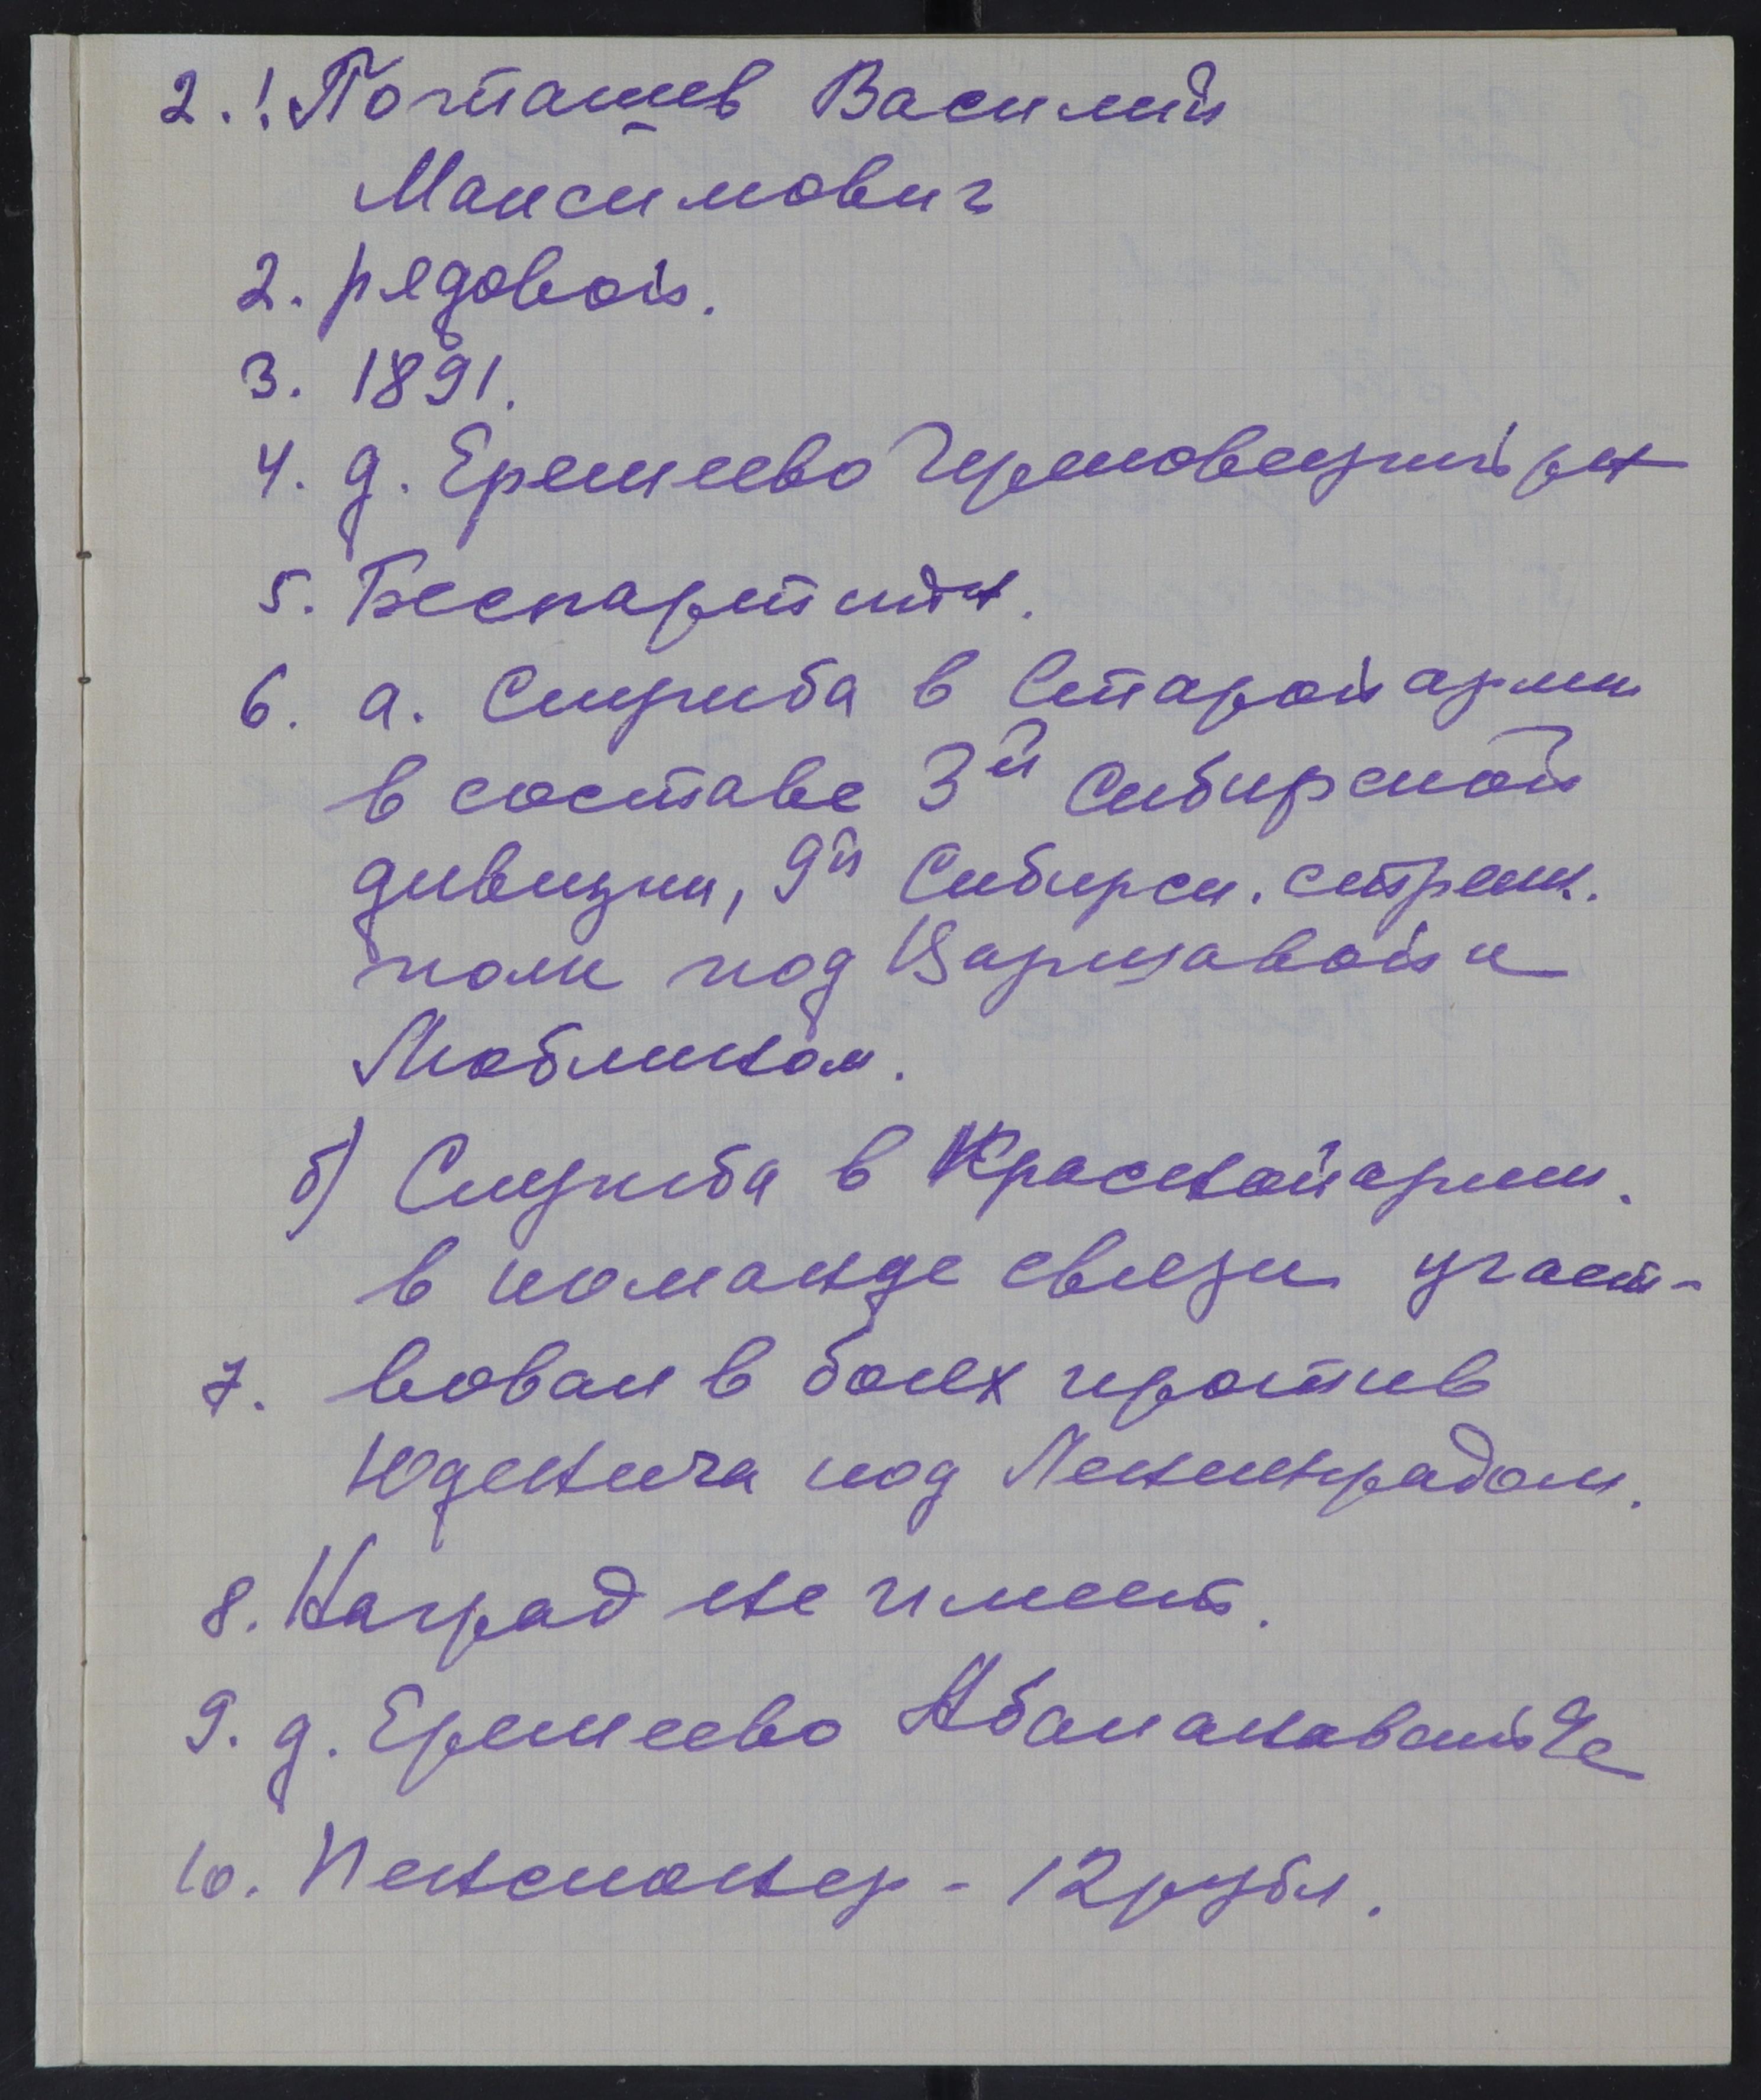 2.! Почташев Василий
Максимович
2. рядовой.
3. 1891.
4. д. Еремеево Череповецкий рн
5. Беспартийн.
6. а. Служба в Старой армии
в составе 3й Сибирской
дивизии, 9й Сибирск. стрелк.
полк под Варшавой и
Люблином.
б) Служба в Красной армии.
в команде связи участ-
7. вовал в боях против
Юденича под Ленинградом.
8. Наград не имеет.
9. д. Еремеево Абакановский
10. Пенсионер - 12 рубл.